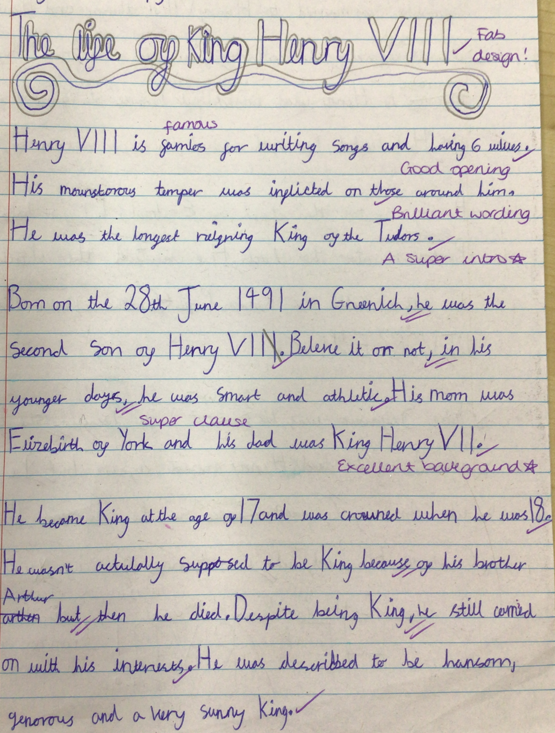 The life of King Henry VIII
Fab
design!
famous
Henry VIII is famios for writing songs and having 6 wives.
Good opening
His mounstorous temper was inflicted on those around him.
Brilliant wording
He was the longest reigning King of the Tudors.
A super intro☆
Born on the 28th June 1491 in Greenich, he was the
second son of Henry VII. Beleve it or not, in his
younger days, he was smart and athletic. His mom was
super clause
Elizebirth of York and his dad was King Henry VII.
Excellent background☆
He became King at the age of 17 and was crowned when he was 18.
He wasn't actulally supposed to be King because of his brother
Arthur
but, then he died. Despite being King, he still carried
on with his interests. He was described to be hansom,
generous and a very sunny King.